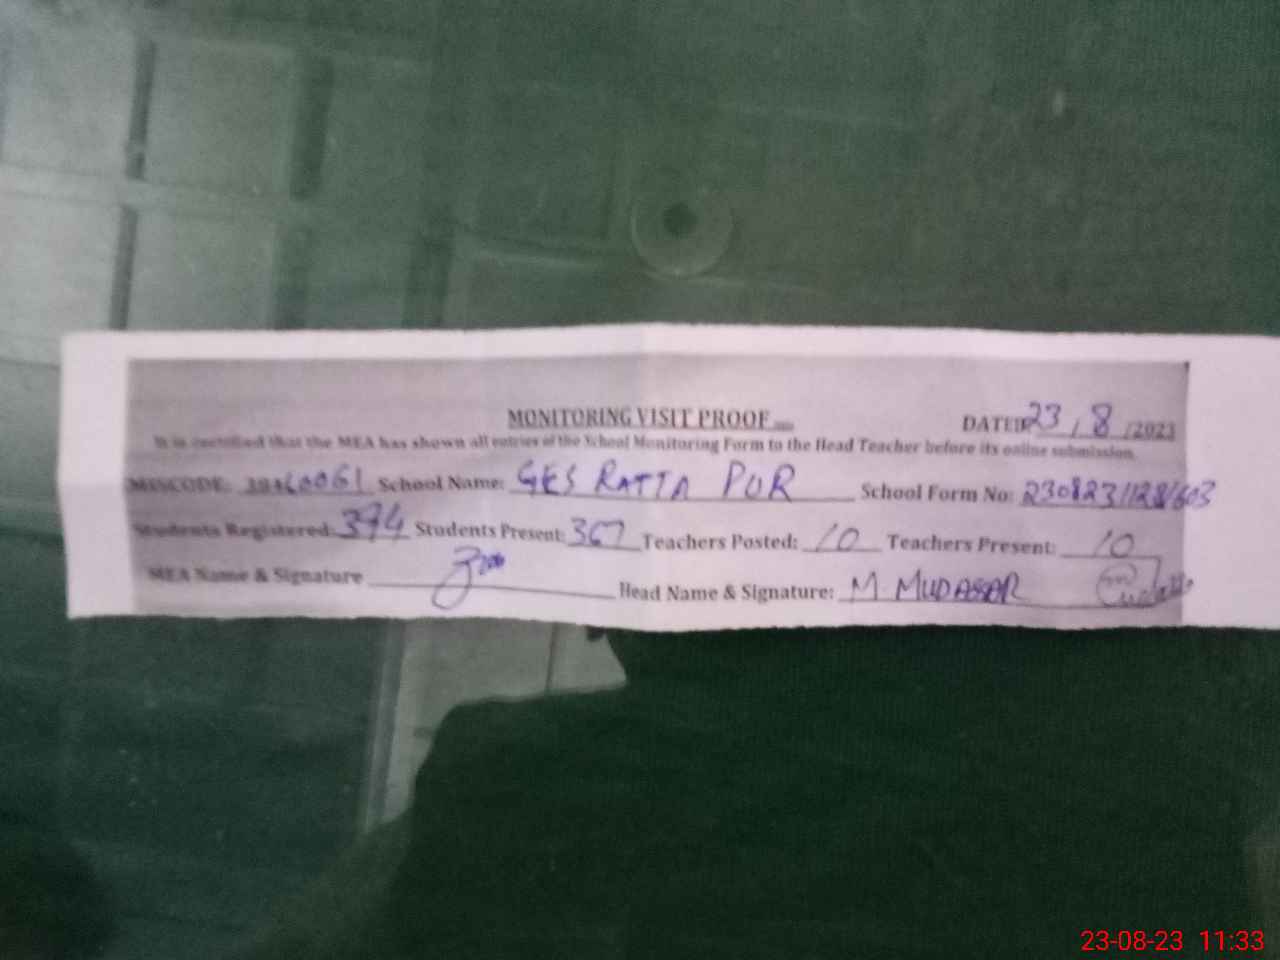 MONITORING VISIT PROOF
DATED 23/8/2023
It is certified that the MEA has shown all entries of the School Monitoring Form to the Head Teacher before its online submission.
MISCODE: School Name: GES RATTA PUR School Form No:
Students Registered: 394 Students Present: 367 Teachers Posted: 10 Teachers Present: 10
MEA Name & Signature Head Name & Signature: M. MUDASSAR
23-08-23 11:33